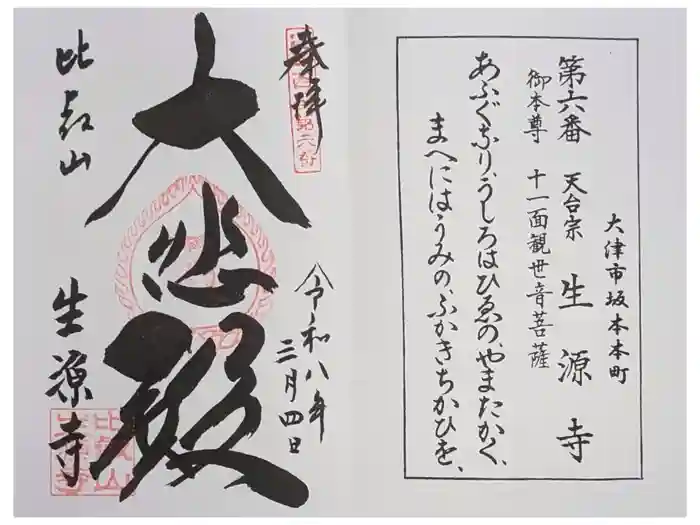 大津市坂本本町
第六番 天台宗 生源寺
御本尊 十一面観世音菩薩
あふぐなり、うしろはひゑの、やまたかく、
まへにはうみの、ふかきちかひを、
奉拝
第六番
大悲殿
令和八年
三月四日
比叡山
生源寺